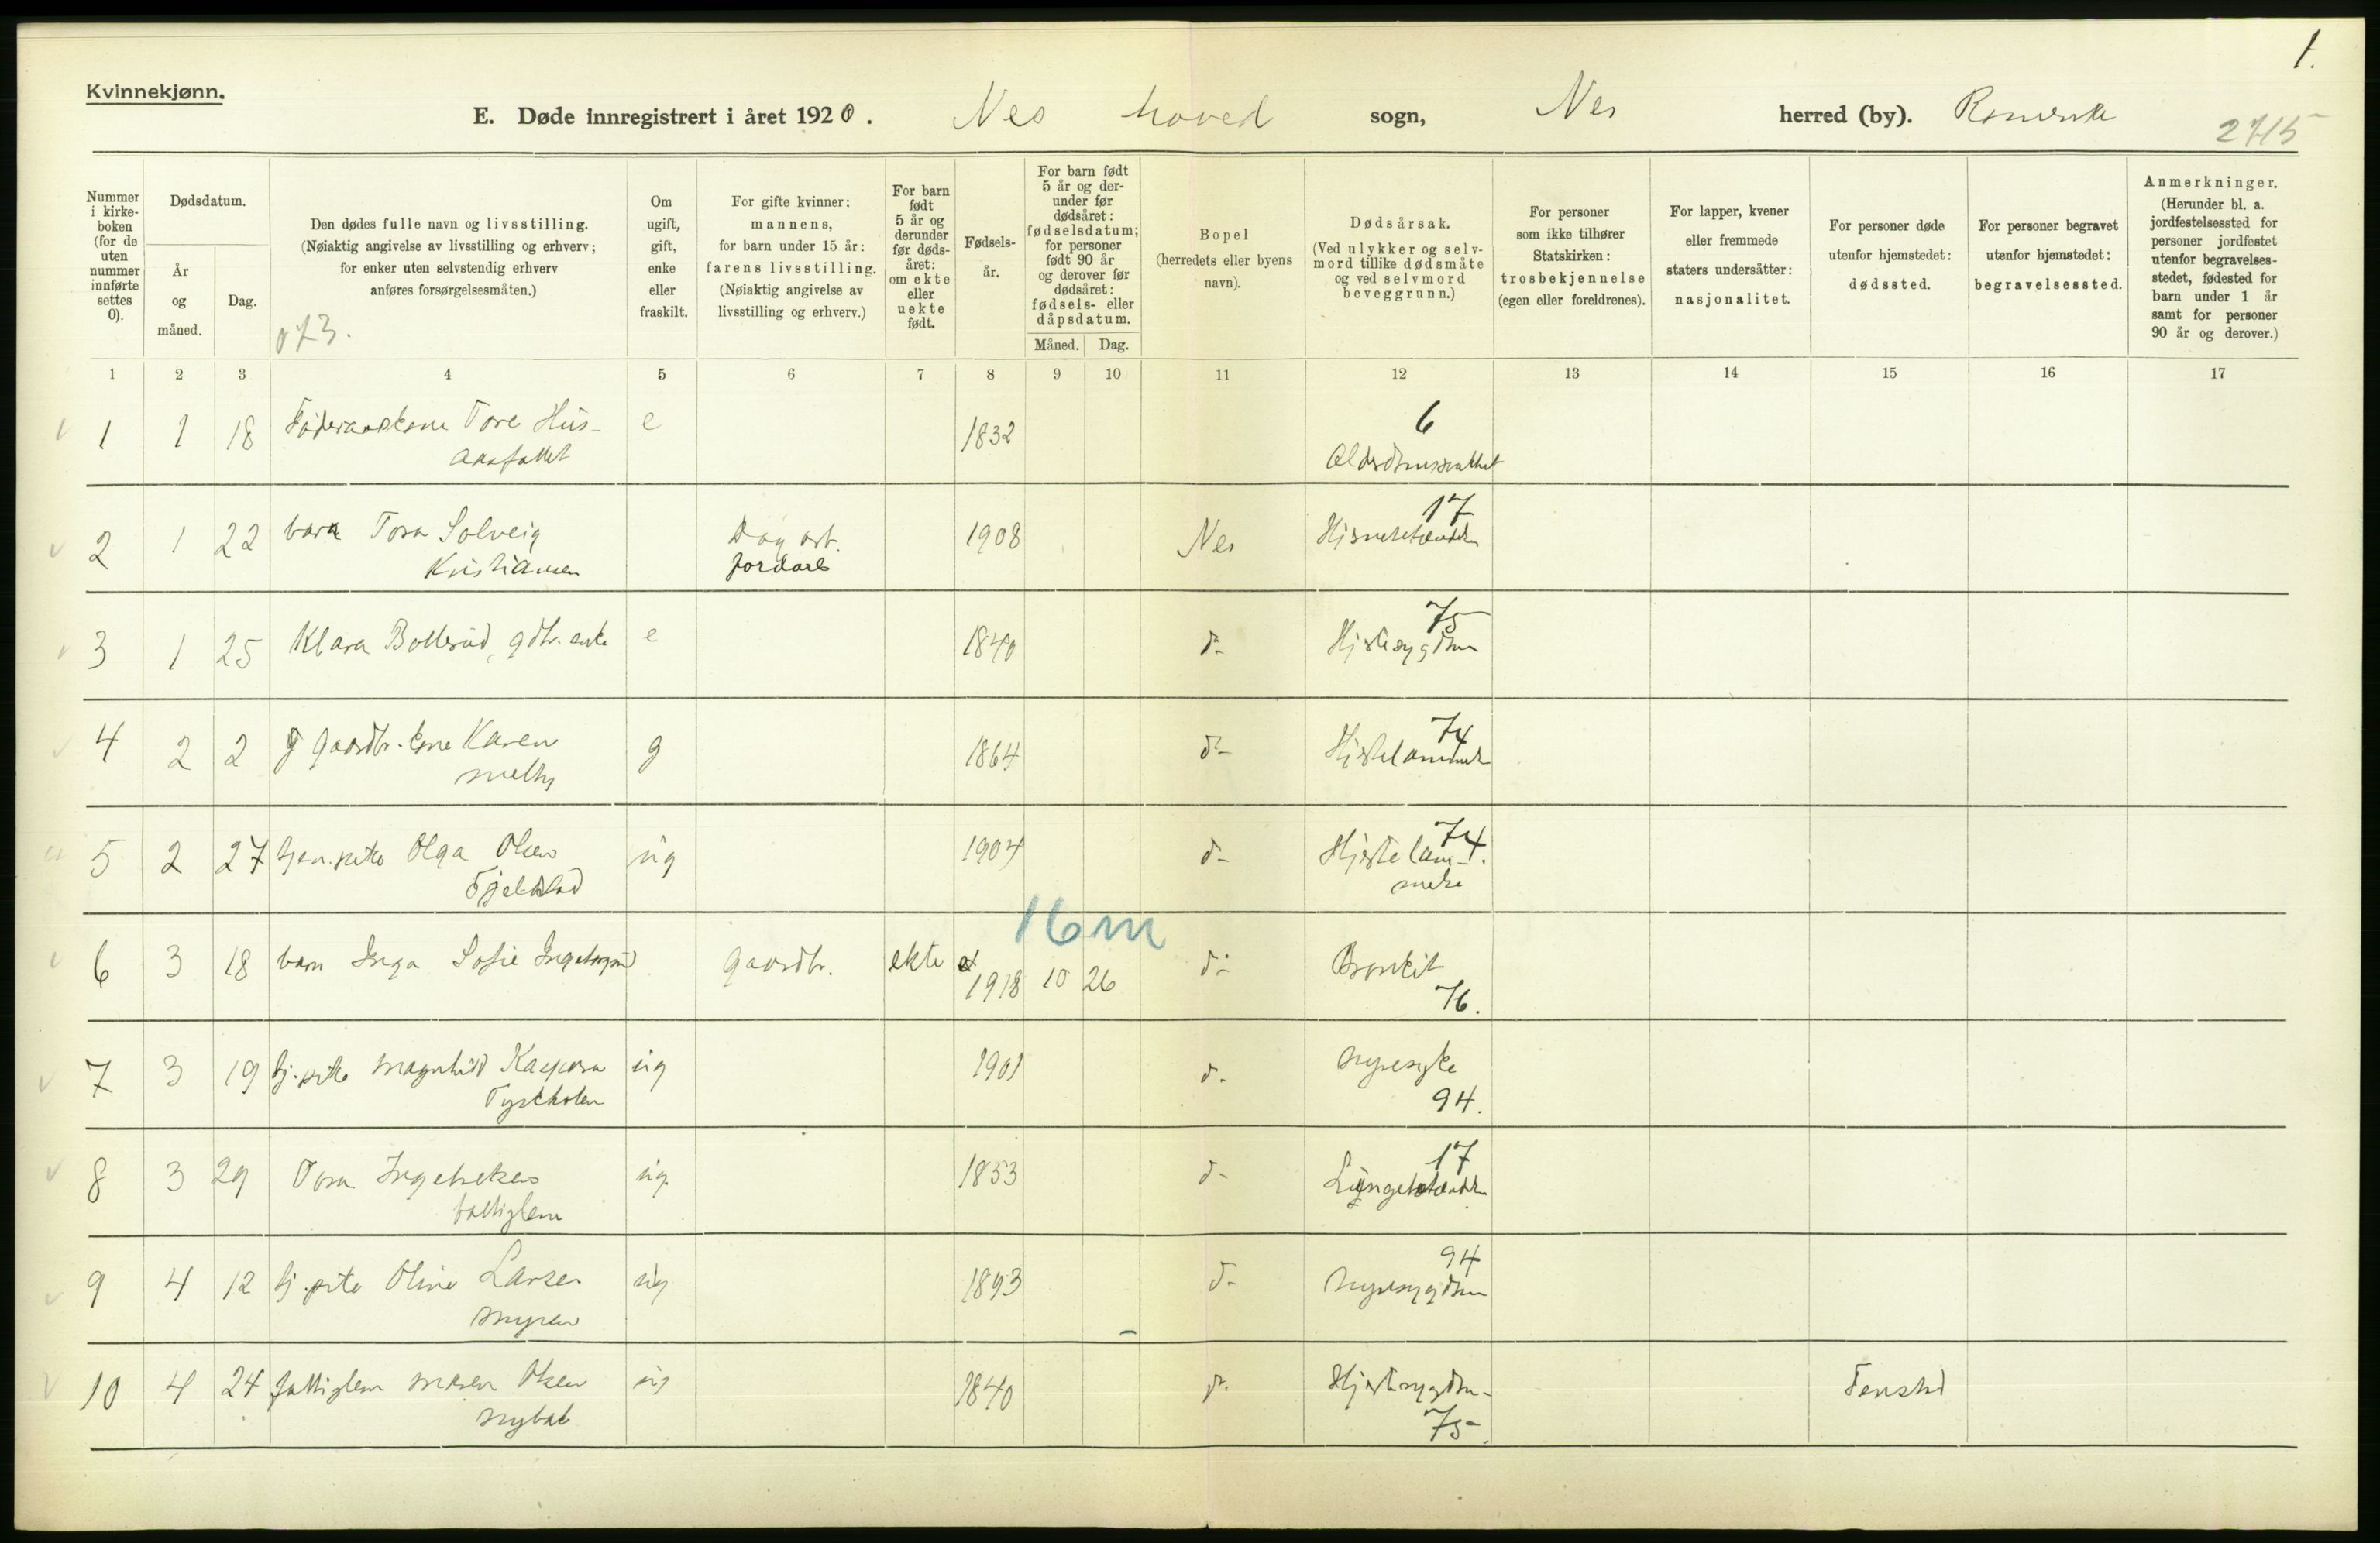 1.
Kvinnekjønn.
E. Døde innregistrert i året 1920. Nes hoved sogn, Nes herred (by). Romerike
2715
Nummer i kirke-boken (for de uten nummer innførte settes 0).
Dødsdatum.
År og måned.
Dag.
Den dødes fulle navn og livsstilling.
(Nøiaktig angivelse av livsstilling og erhverv;
for enker uten selvstendig erhverv
anføres forsørgelsesmåten.)
073.
Om ugift, gift, enke eller fraskilt.
For gifte kvinner:
mannens,
for barn under 15 år:
farens livsstilling.
(Nøiaktig angivelse av
livsstilling og erhverv.)
For barn født 5 år og derunder før døds-året: om ekte eller uekte født.
Fødsels-år.
For barn født 5 år og der-under før dødsåret: fødselsdatum; for personer født 90 år og derover før dødsåret: fødsels- eller dåpsdatum.
Måned. Dag.
Bopel
(herredets eller byens
navn).
Dødsårsak.
(Ved ulykker og selv-
mord tillike dødsmåte
og ved selvmord
beveggrunn.)
For personer
som ikke tilhører
Statskirken:
trosbekjennelse
(egen eller foreldrenes).
For lapper, kvener
eller fremmede
staters undersåtter:
nasjonalitet.
For personer døde
utenfor hjemstedet:
dødssted.
For personer begravet
utenfor hjemstedet:
begravelsessted.
Anmerkninger.
(Herunder bl. a.
jordfestelsessted for
personer jordfestet
utenfor begravelses-
stedet, fødested for
barn under 1 år
samt for personer
90 år og derover.)
1 2 3 4 5 6 7 8 9 10 11 12 13 14 15 16 17
1 1 18 Føderaadskone Tore Hus- e 1832 6
Alderdomssvakhet
2 1 22 barn Tora Solveig Dag arb. 1908 Nes 17
Kristiansen jordarb
3 1 25 Klara Bollerud, gdbr. enke e 1840 d- 75
Hjertesygdom
4 2 2 Gaardbr. kone Karen g 1864 d- 74
Hjertelammelse
5 2 27 tjen.pike Olga Olsen ug 1904 d- 74.
Fjeldstad Hjertelam-
melse
16 m
6 3 18 barn Inga Sofie gaardbr. ekte 1918 10 26 d- Bronkit
76.
7 3 19 tj.pike Magnhild Kaspara ug 1901 d- Nyresyke
94.
8 3 29 Tora Ingebretsen ug. 1853 d- 17
fattiglem
9 4 12 tj.pike Oline Larsen ug 1893 d- 94
Myren Nyresygdom
10 4 24 fattiglem Maren Olsen ug 1840 d- Hjertesygdom- Fenstad
75-